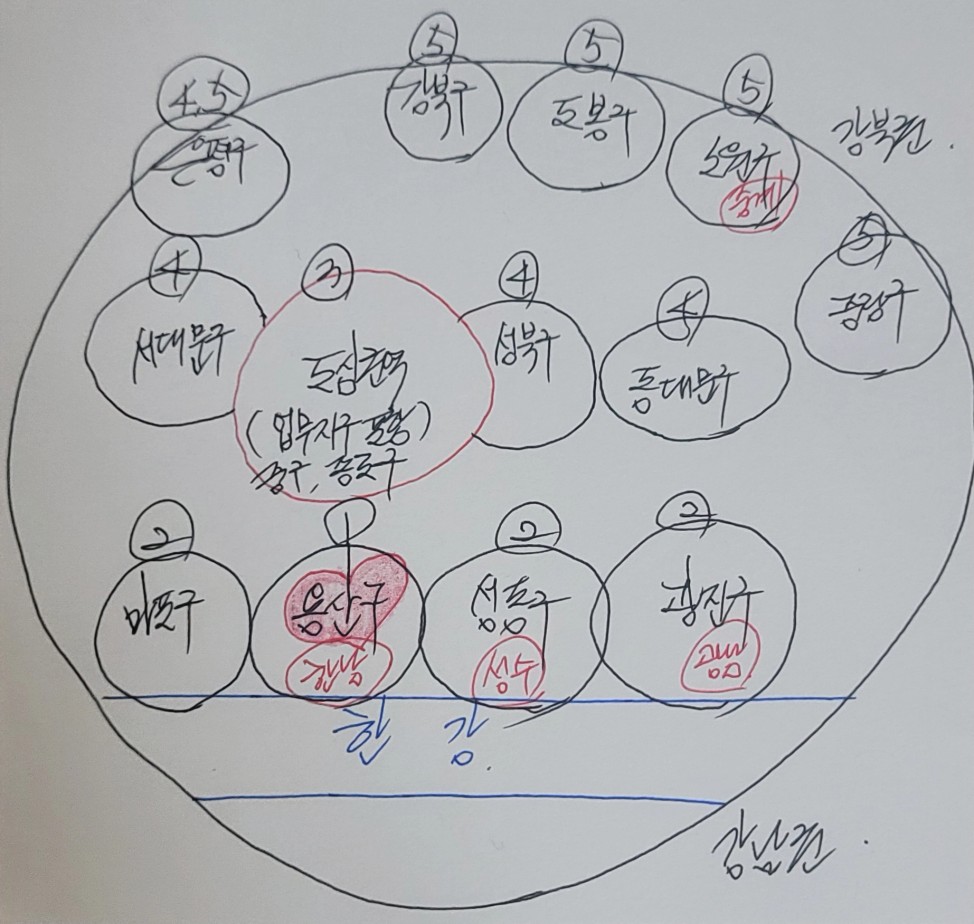 5
5
4.5
강북구
5
도봉구
은평구
노원구
중계
강북권.
5
중랑구
4
서대문구
3
도심권역
(업무지구 포함)
중구, 종로구
4
성북구
4
동대문구
2
마포구
1
용산구
한남
2
성동구
성수
2
광진구
광남
한강.
강남권.